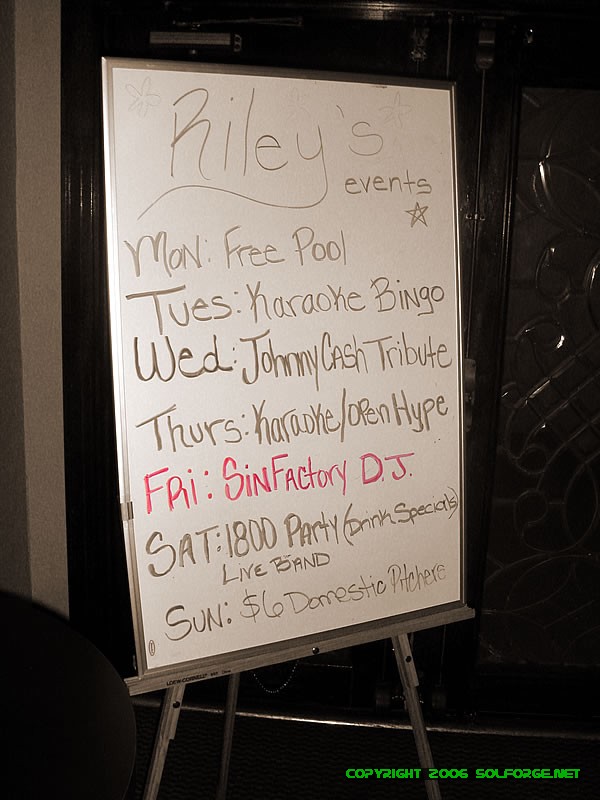 Riley's
events
Mon: Free Pool
Tues: Karaoke Bingo
Wed: Johnny Cash Tribute
Thurs: Karaoke/open Hype
FRi: SiNFactory D.J.
SAT: 1800 Party (Drink Specials)
LIVE BAND
SUN: $6 Domestic Pitchers
COPYRIGHT 2006 SOLFORGE.NET